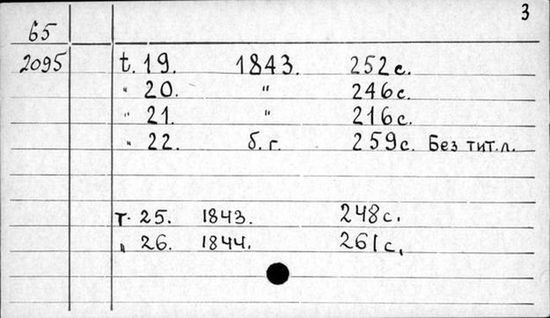 3
65
2095
t. 19. 1843. 252 с.
" 20. " 246 с.
" 21. " 216 с.
" 22. б. г. 259 с. Без тит. л.
т. 25. 1843. 248 с.
" 26. 1844. 261 с.